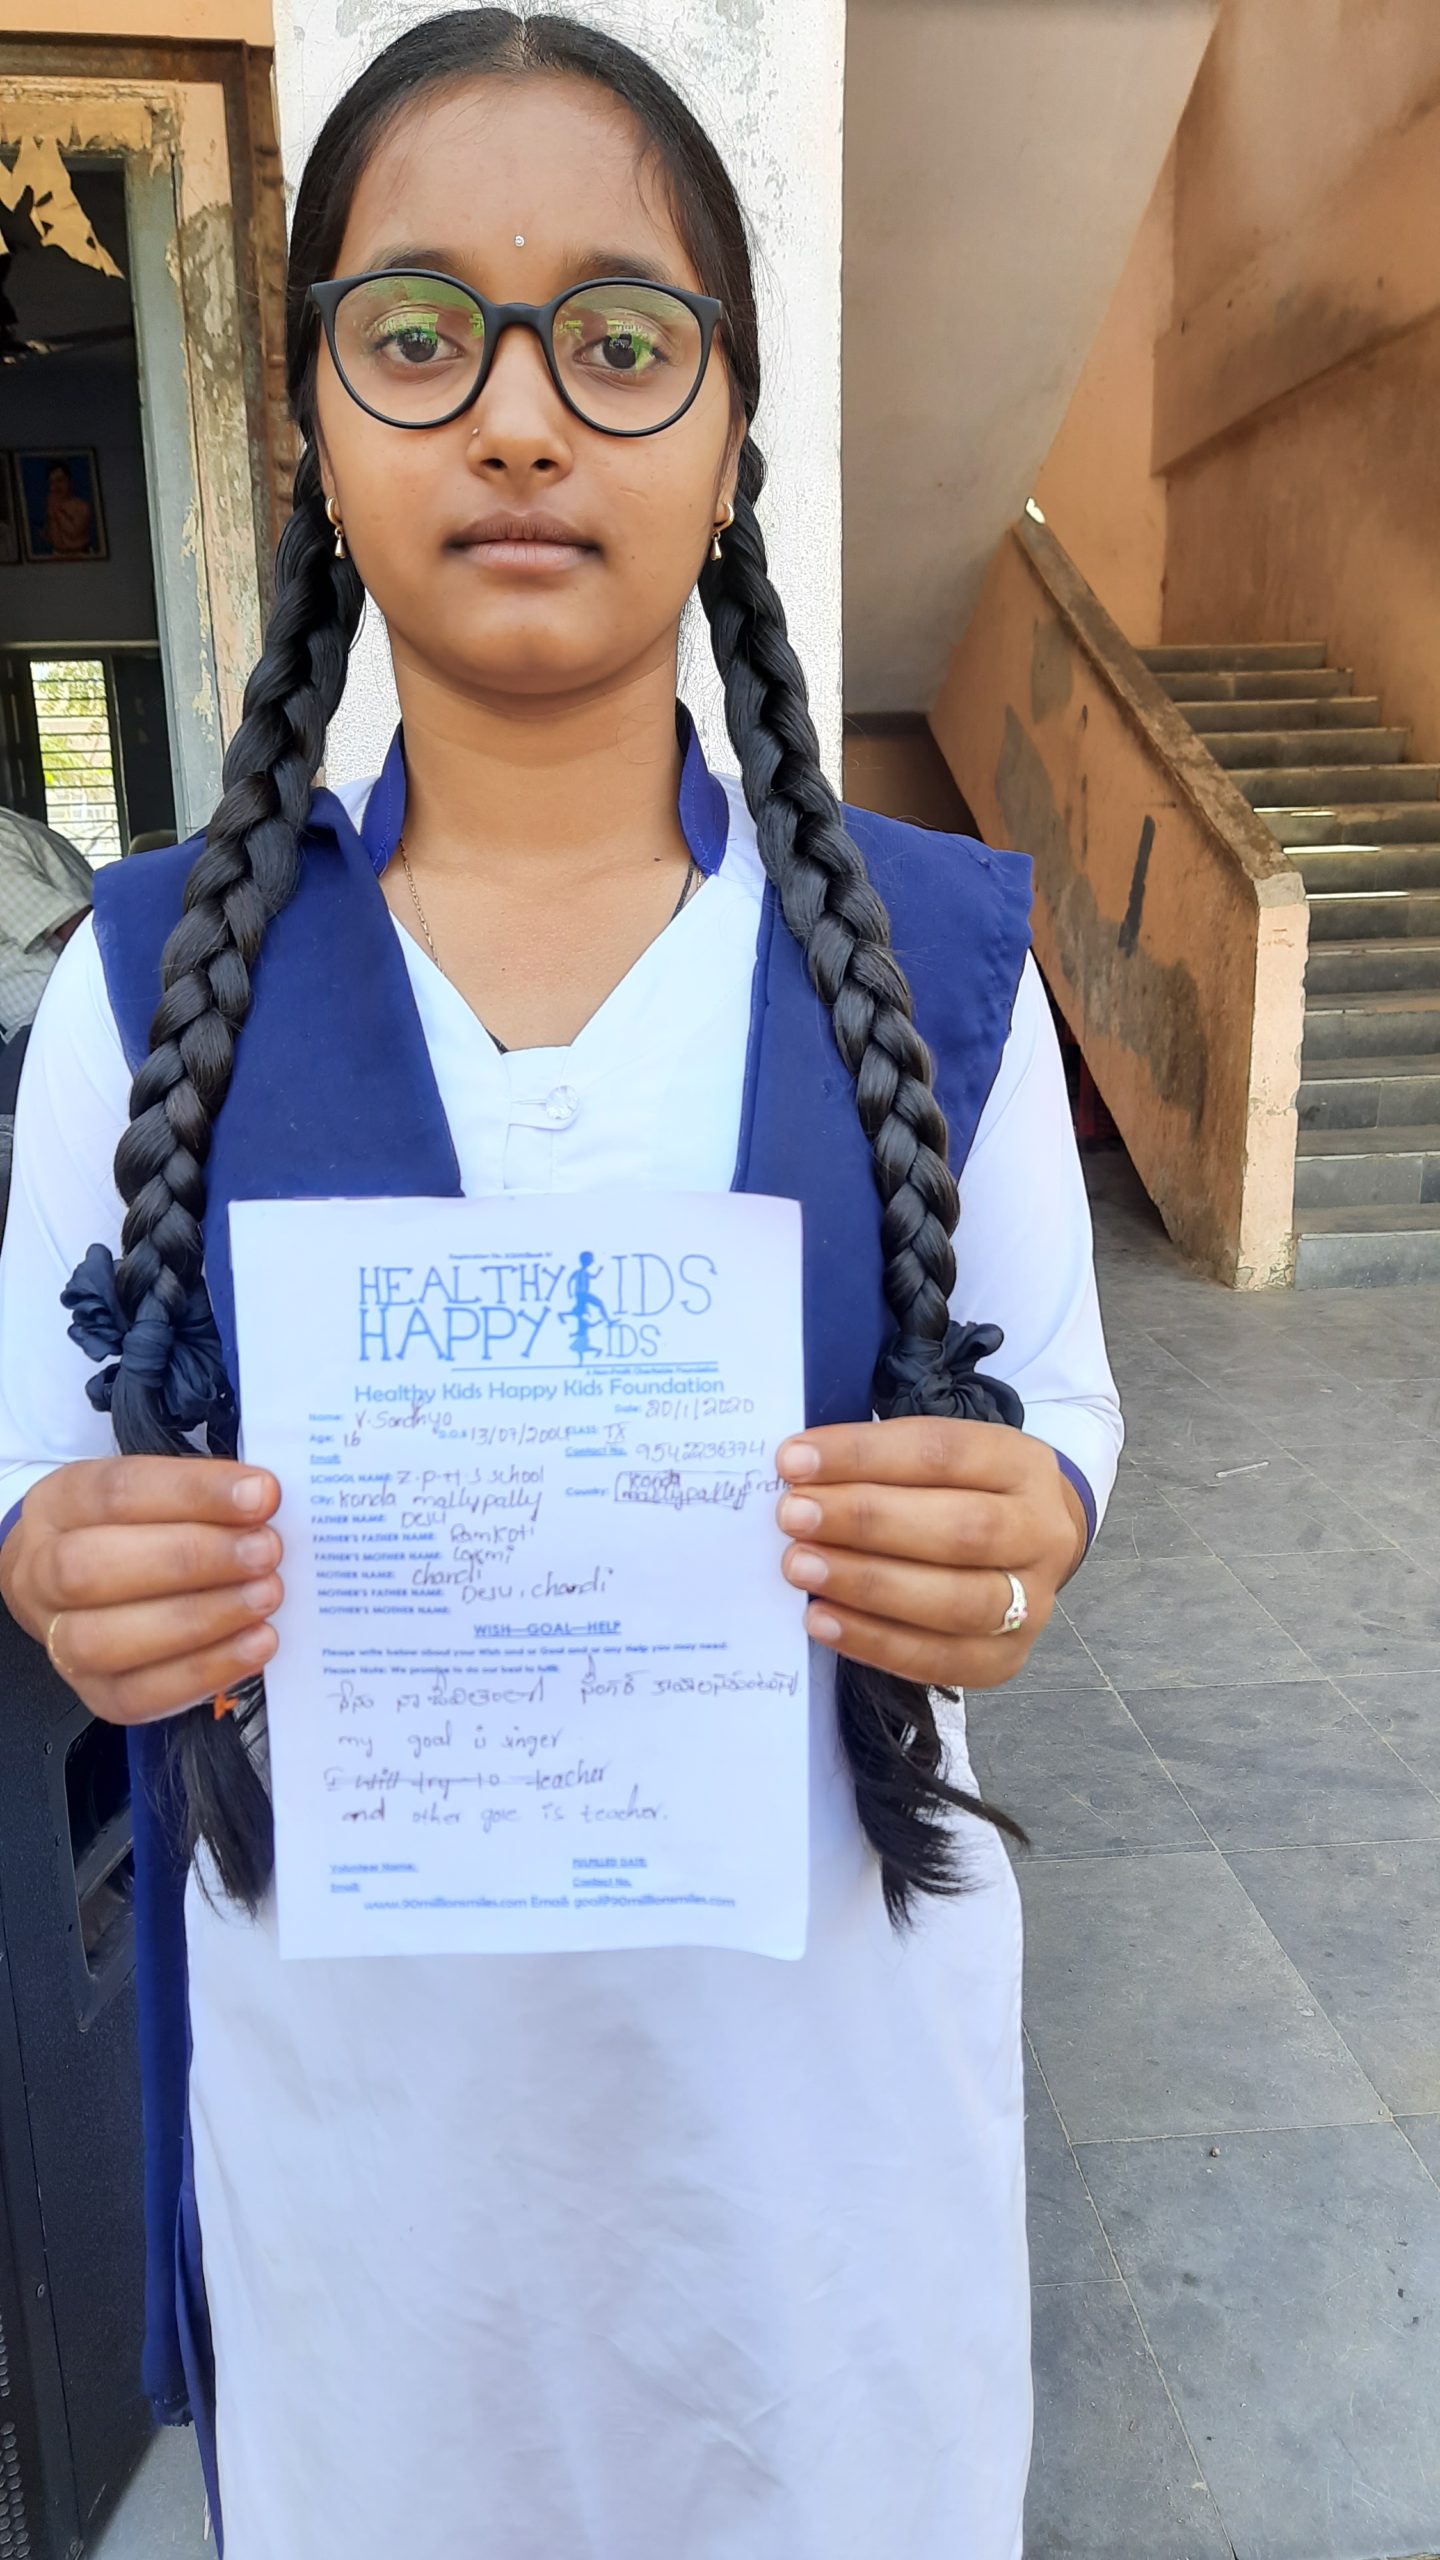 HEALTHY KIDS
HAPPY KIDS
A Non-Profit Charitable Foundation
Healthy Kids Happy Kids Foundation
Name: V. Sandhya Date: 20/1/2020
Age: 16 D.O.B 13/07/2004 CLASS: IX
Email: Contact No. 9542236374
SCHOOL NAME: Z.P.H.S School
City: Konda mallypally Country: Konda mallypally India
FATHER NAME: Desu
FATHER'S FATHER NAME: Ramkoti
FATHER'S MOTHER NAME: Laxmi
MOTHER NAME: Chandi
MOTHER'S FATHER NAME: Desu, chandi
MOTHER'S MOTHER NAME:
WISH—GOAL—HELP
Please write below about your Wish and or Goal and or any Help you may need:
Please Note: We promise to do our best to fulfill.
నేను నా జీవితంలో సింగర్ కావాలనుకుంటున్నా.
my goal is singer
I will try to teacher
and other gole is teacher.
Volunteer Name: FULFILLED DATE:
Email: Contact No.
www.90millionsmiles.com Email: goal@90millionsmiles.com